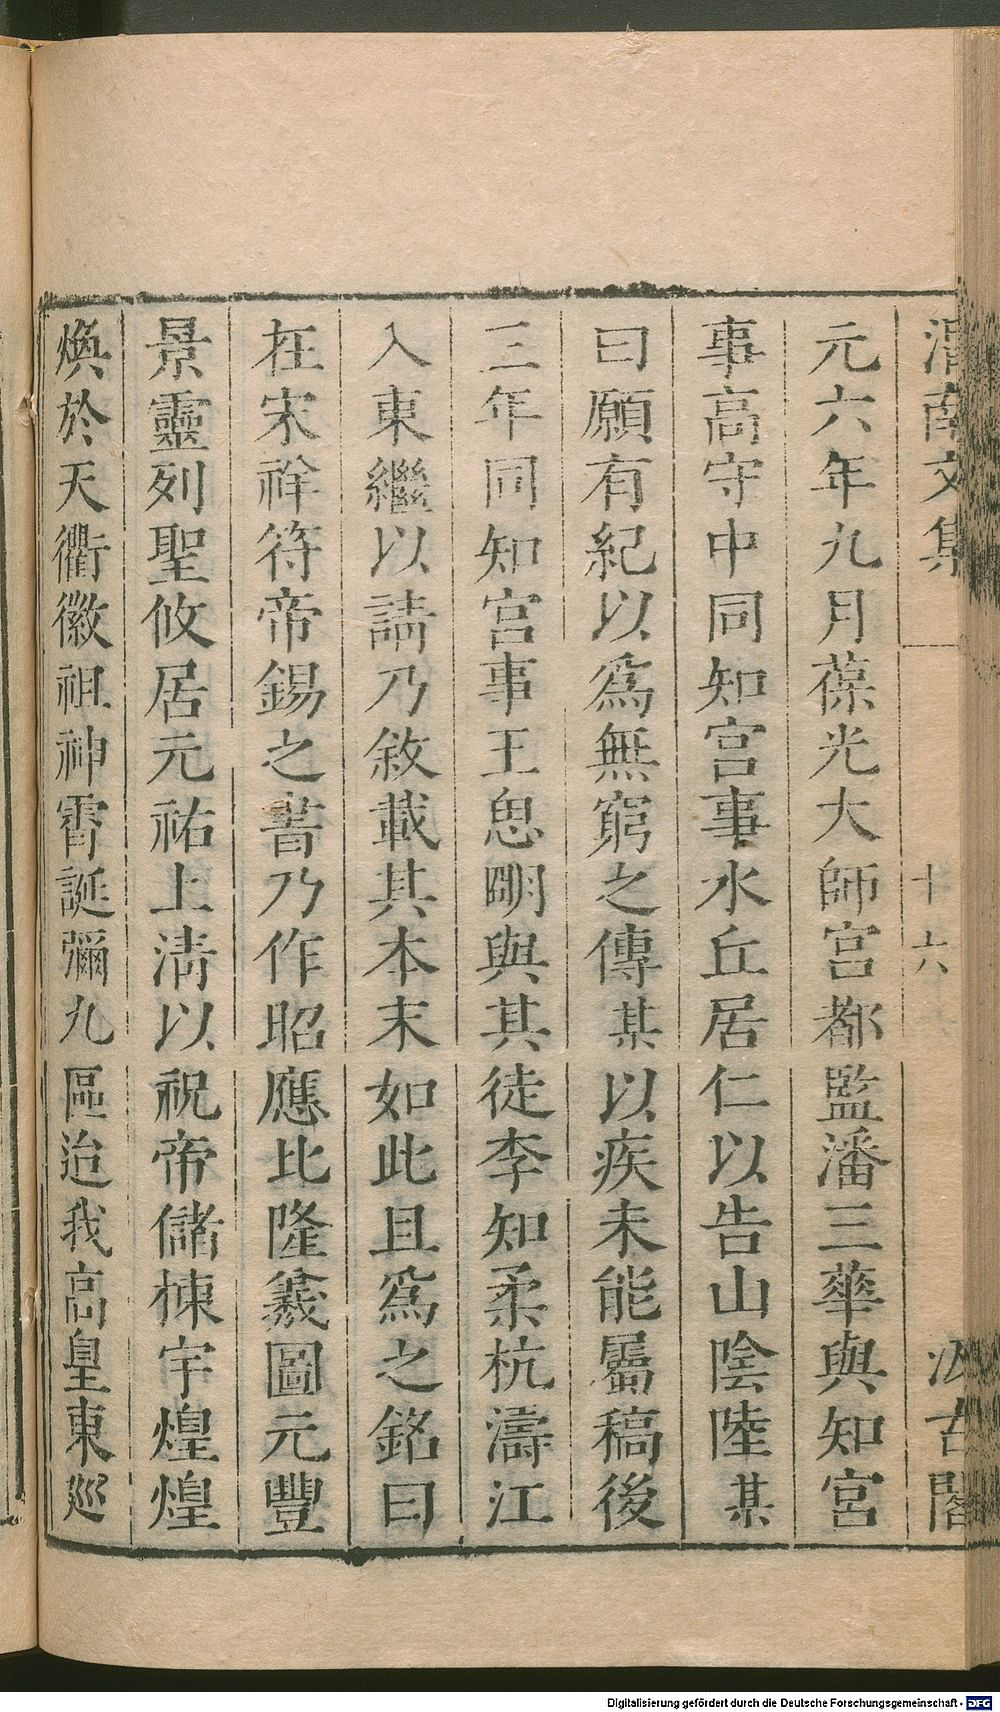 渭南文集 十六 汲古閣
元六年九月葆光大師宮都監潘三華與知宮
事高守中同知宮事水丘居仁以告山陰陸某
曰願有紀以爲無窮之傳某以疾未能屬稿後
三年同知宮事王思明與其徒李知柔杭濤江
入東繼以請乃敘載其本末如此且爲之銘曰
在宋祥符帝錫之書乃作昭應比隆羲圖元豐
景靈列聖攸居元祐上淸以祝帝儲棟宇煌煌
煥於天衢徽祖神霄誕彌九區迨我高皇東巡
Digitalisierung gefördert durch die Deutsche Forschungsgemeinschaft - DFG